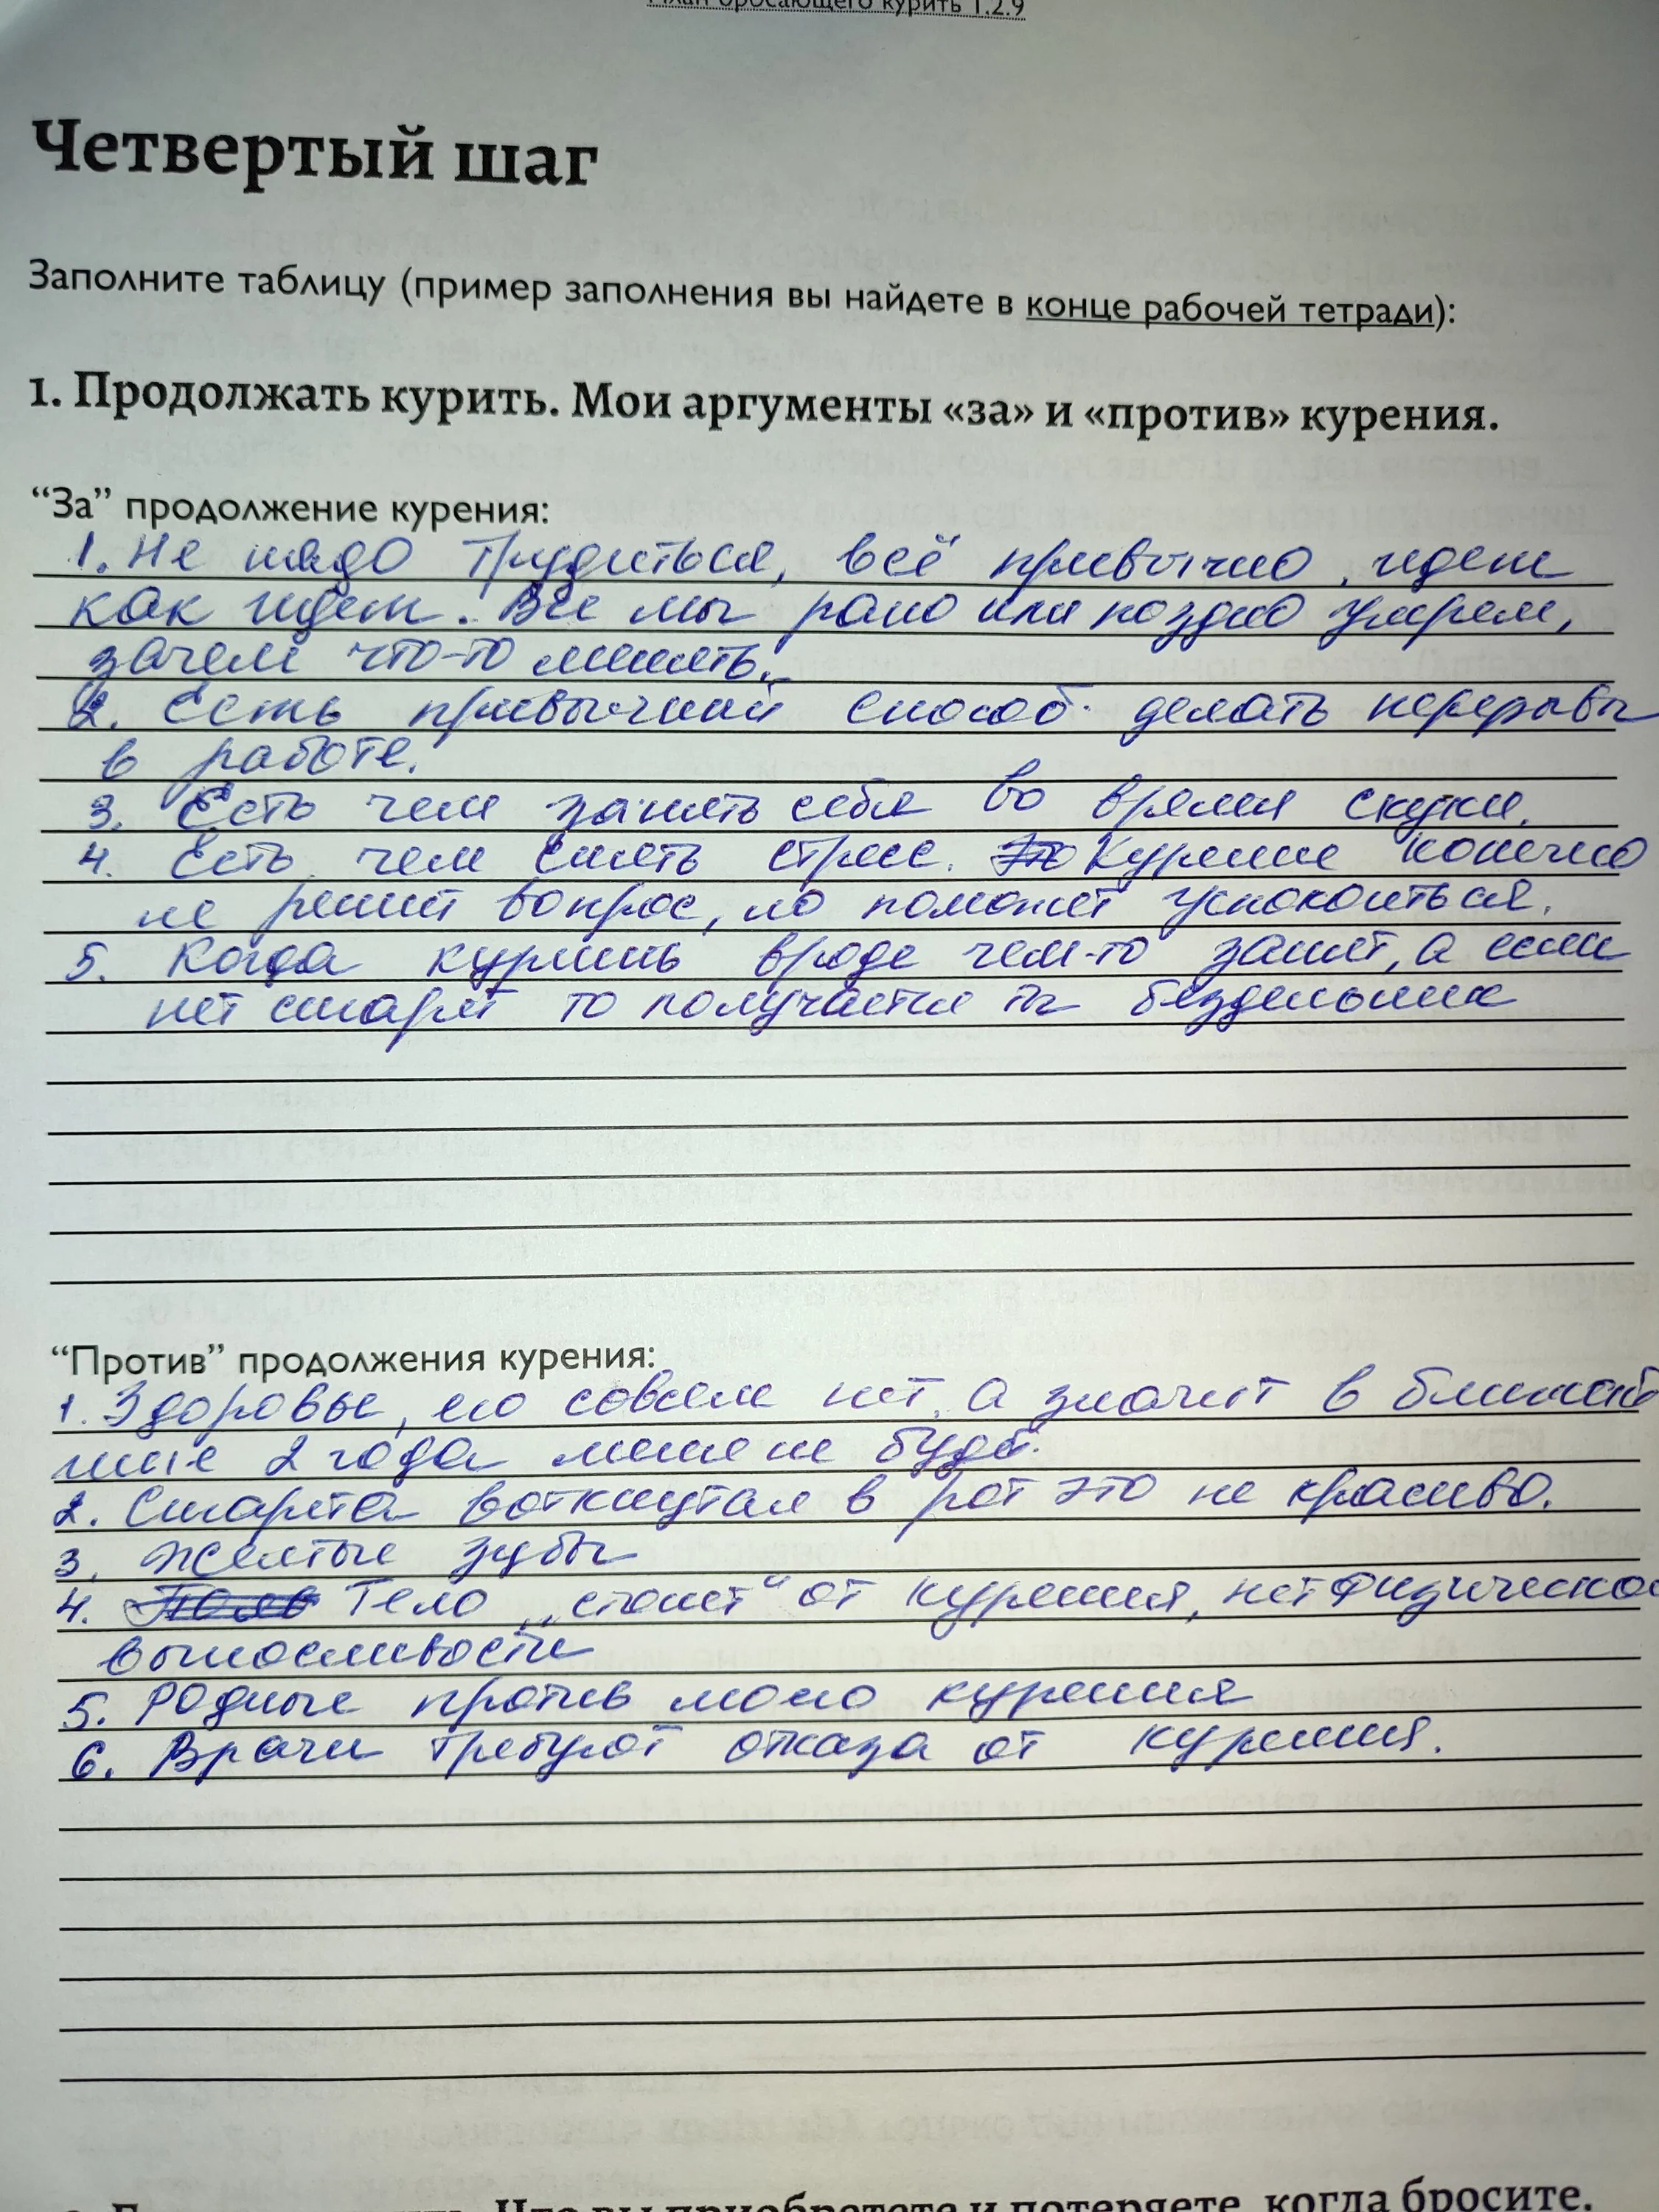 План бросающего курить 1.2.9
Четвертый шаг
Заполните таблицу (пример заполнения вы найдете в конце рабочей тетради):
1. Продолжать курить. Мои аргументы «за» и «против» курения.
“За” продолжение курения:
1. Не надо трудиться, всё привычно, идет
как идет. Все мы рано или поздно умрем,
зачем что-то менять.
2. Есть привычный способ делать перерывы
в работе.
3. Есть чем занять себя во время скуки.
4. Есть чем снять стресс. Это Курение конечно
не решит вопрос, но поможет успокоиться.
5. Когда куришь вроде чем-то занят, а если
нет сигарет то получается ты бездельник
“Против” продолжения курения:
1. Здоровье, его совсем нет, а значит в ближай
шие 2 года меня не будет.
2. Сигарета воткнутая в рот это не красиво.
3. Желтые зубы
4. Тело „стонет“ от курения, нет физической
выносливости
5. Родные против моего курения
6. Врачи требуют отказа от курения.
Что вы приобретете и потеряете, когда бросите.